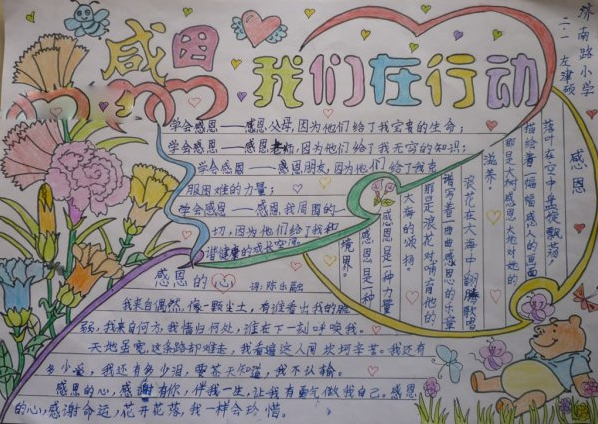 感恩
我们在行动
济南路小学
二·1 左津硕
学会感恟——感恩父母,因为他们给了我宝贵的生命;
学会感恩——感恩老师,因为他们给了我无穷的知识;
学会感恩——感恩朋友,因为他们给了我克
服困难的力量;
学会感恩——感恩我周围的一
切,因为他们给了我和
谐健康的成长空间
感恩
落叶在空中盘旋飘荡,
描绘着一幅幅感人的画面
那是大树感恩大地对她的
滋养。
浪花在大海中翻腾歌唱
谱写着一曲曲感恩的乐章
那是浪花对哺育他的
大海的颂扬。
感恩是一种力量
感恩是一种
境界。
感恩的心
词:陈乐融
我来自偶然,像一颗尘土,有谁看出我的脆
弱,我来自何方,我情归何处,谁在下一刻呼唤我。
天地虽宽,这条路却难走,我看遍这人间坎坷辛苦。我还有
多少爱,我还有多少泪,要苍天知道,我不认输。
感恩的心,感谢有你,伴我一生,让我有勇气做我自己。感恩
的心,感谢命运,花开花落,我一样会珍惜。